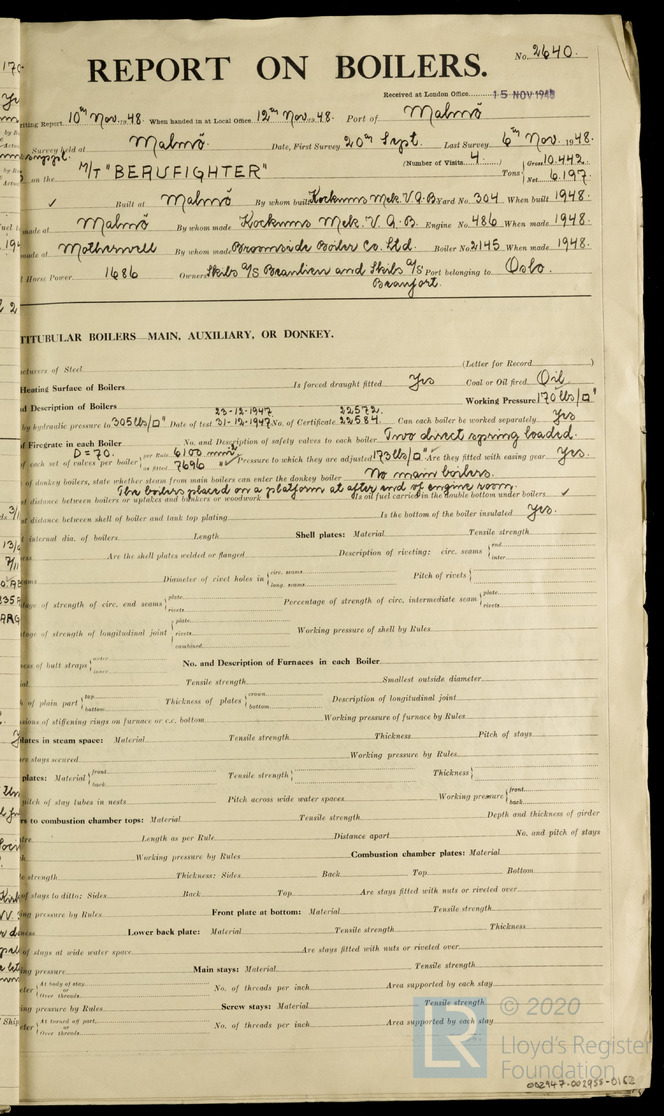 No. 2640.
REPORT ON BOILERS.
Received at London Office 15 NOV 1948
riting Report 10th Nov. 1948. When handed in at Local Office 12th Nov. 1948. Port of Malmö
Survey held at Malmö Date, First Survey 20th Sept. Last Survey 6th Nov. 1948.
(Number of Visits 4.)
on the M/T "BEAUFIGHTER" Tons { Gross 10.442. Net 6.197.
✓ Built at Malmö By whom built Kockums Mek. V. A.B. Yard No. 304 When built 1948.
made at Malmö By whom made Kockums Mek. V. A.B. Engine No. 486 When made 1948.
made at Motherwell By whom made Broomside Boiler Co. Ltd. Boiler No. 2145 When made 1948.
Horse Power 1686 Owners Skibs A/S Beaulieu and Skibs A/S Beaufort. Port belonging to Oslo.
TITUBULAR BOILERS—MAIN, AUXILIARY, OR DONKEY.
cturers of Steel (Letter for Record )
Heating Surface of Boilers Is forced draught fitted Yes Coal or Oil fired Oil
d Description of Boilers Working Pressure 170 lbs/□"
by hydraulic pressure to 305 lbs/□" Date of test 23-12-1947 31-12-1947 No. of Certificate 22572. 22584. Can each boiler be worked separately Yes
of Firegrate in each Boiler No. and Description of safety valves to each boiler Two direct spring loaded.
of each set of valves per boiler D=70. { per Rule 6100 mm² as fitted 7696 " ✓ Pressure to which they are adjusted 173 lbs/□" Are they fitted with easing gear Yes.
of donkey boilers, state whether steam from main boilers can enter the donkey boiler No main boilers.
The boilers placed on a platform at after end of engine room.
st distance between boilers or uptakes and bunkers or woodwork Is oil fuel carried in the double bottom under boilers ✓
st distance between shell of boiler and tank top plating Is the bottom of the boiler insulated Yes.
t internal dia. of boilers Length Shell plates: Material Tensile strength
ess Are the shell plates welded or flanged Description of riveting: circ. seams { end inter.
eams Diameter of rivet holes in { circ. seams long. seams Pitch of rivets {
tage of strength of circ. end seams { plate rivets Percentage of strength of circ. intermediate seam { plate rivets
tage of strength of longitudinal joint { plate rivets combined Working pressure of shell by Rules
ess of butt straps { outer inner No. and Description of Furnaces in each Boiler
ial Tensile strength Smallest outside diameter
h of plain part { top bottom Thickness of plates { crown bottom Description of longitudinal joint
sions of stiffening rings on furnace or c.c. bottom Working pressure of furnace by Rules
lates in steam space: Material Tensile strength Thickness Pitch of stays
re stays secured Working pressure by Rules
plates: Material { front back Tensile strength { Thickness {
pitch of stay tubes in nests Pitch across wide water spaces Working pressure { front back
rs to combustion chamber tops: Material Tensile strength Depth and thickness of girder
tre Length as per Rule Distance apart No. and pitch of stays
h Working pressure by Rules Combustion chamber plates: Material
le strength Thickness: Sides Back Top Bottom
of stays to ditto: Sides Back Top Are stays fitted with nuts or riveted over
ng pressure by Rules Front plate at bottom: Material Tensile strength
ness Lower back plate: Material Tensile strength Thickness
of stays at wide water space Are stays fitted with nuts or riveted over
ng pressure Main stays: Material Tensile strength
eter { At body of stay or Over threads No. of threads per inch Area supported by each stay
ng pressure by Rules Screw stays: Material Tensile strength
eter { At turned off part or Over threads No. of threads per inch Area supported by each stay
LR © 2020
Lloyd's Register
Foundation
002947-002955-0162